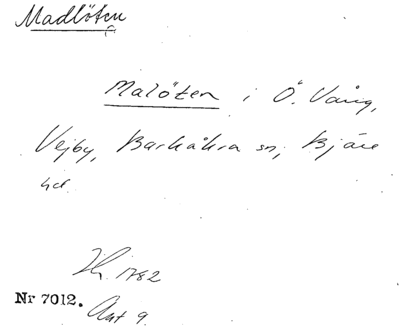 Madlöten
Malöten i Ö. Vång,
Vejby, Barkåkra sn, Bjäre
hd
1782
Nr 7012. Akt 9.